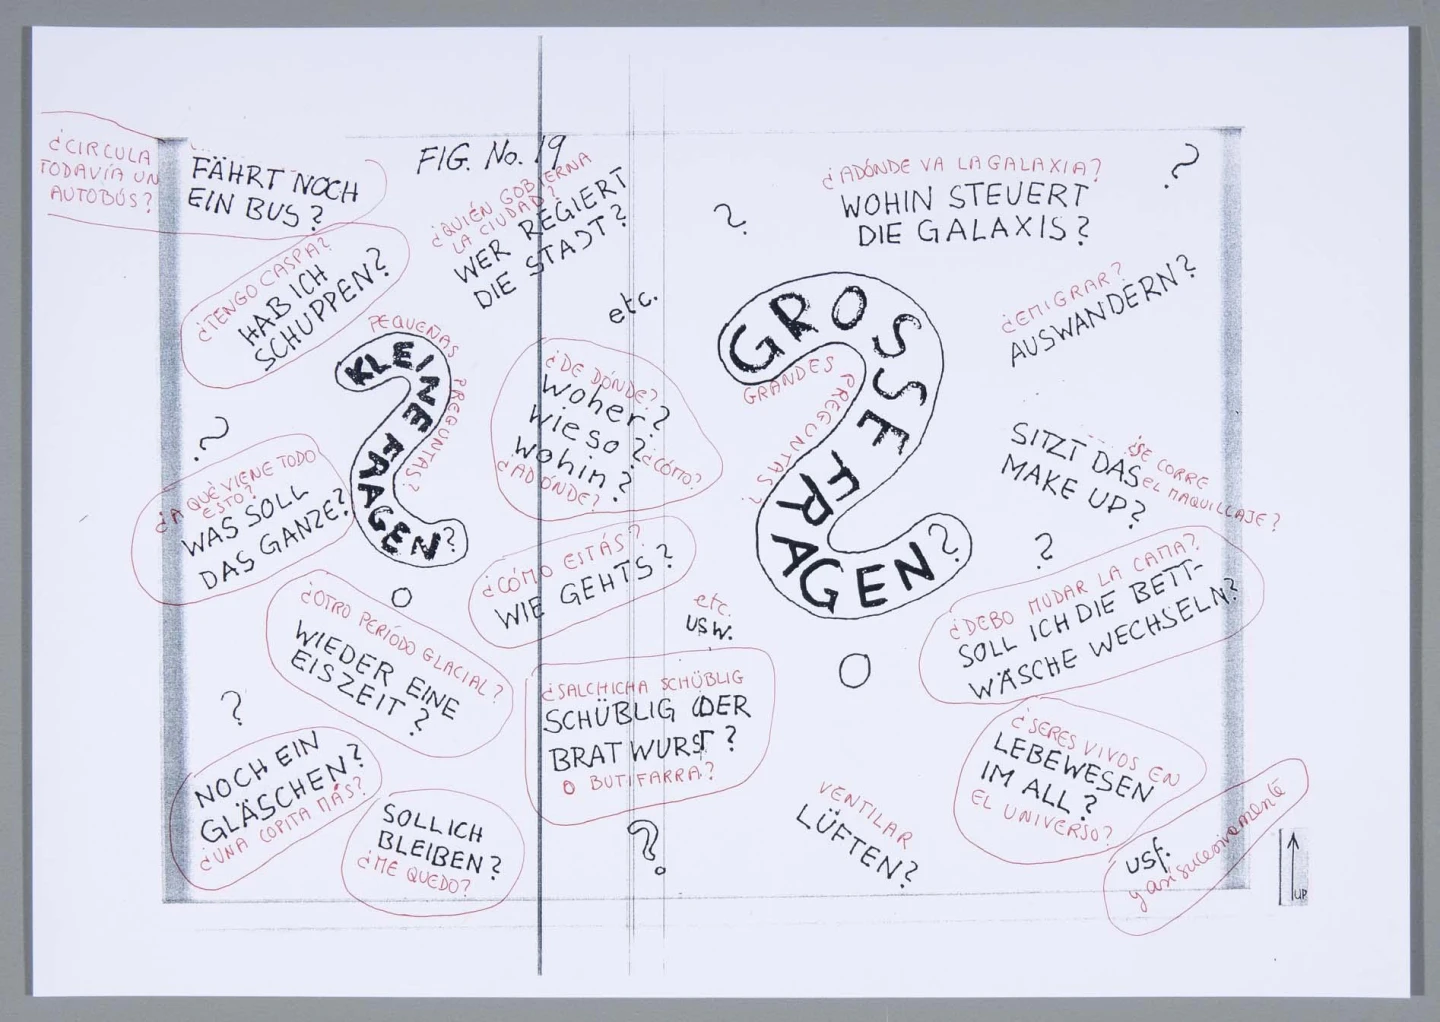 FIG. No. 19
¿CIRCULA
TODAVÍA UN
AUTOBÚS?
FÄHRT NOCH
EIN BUS?
¿QUIÉN GOBIERNA
LA CIUDAD?
WER REGIERT
DIE STADT?
¿ADÓNDE VA LA GALAXIA?
WOHIN STEUERT
DIE GALAXIS?
?
?
¿TENGO CASPA?
HAB ICH
SCHUPPEN?
etc.
¿EMIGRAR?
AUSWANDERN?
PEQUEÑAS PREGUNTAS?
KLEINE FRAGEN?
GROSSE FRAGEN?
GRANDES PREGUNTAS?
¿DE DÓNDE?
woher?
wieso?
¿CÓMO?
wohin?
¿ADÓNDE?
?
¿A QUÉ VIENE TODO
ESTO?
WAS SOLL
DAS GANZE?
SITZT DAS
MAKE UP?
¿SE CORRE
EL MAQUILLAJE?
¿CÓMO ESTÁS?
WIE GEHTS?
?
¿DEBO MUDAR LA CAMA?
SOLL ICH DIE BETT-
WÄSCHE WECHSELN?
¿OTRO PERÍODO GLACIAL?
WIEDER EINE
EISZEIT?
etc.
usw.
?
¿SALCHICHA SCHÜBLIG
SCHÜBLIG ODER
BRATWURST?
O BUTIFARRA?
¿SERES VIVOS EN
LEBEWESEN
IM ALL?
EL UNIVERSO?
NOCH EIN
GLÄSCHEN?
¿UNA COPITA MÁS?
SOLL ICH
BLEIBEN?
¿ME QUEDO?
?
VENTILAR
LÜFTEN?
usf.
y así sucesivamente
UP